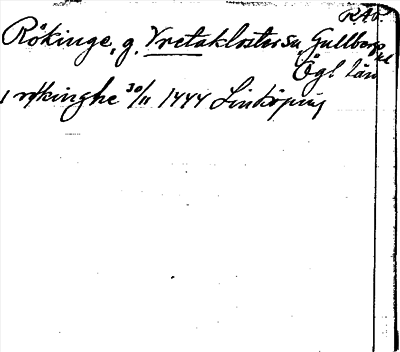 RAP.
Rökinge, g. Vreta kloster sn, Gullbergs hd
Ögl. län
i røkinghe 30/11 1444 Linköping